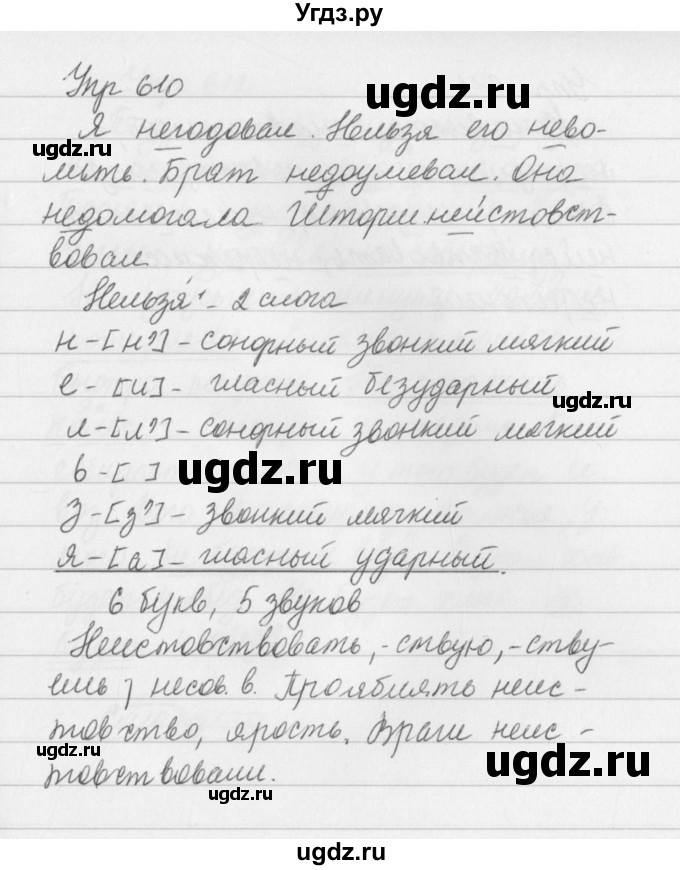 Угдз.ру
Упр 610
Я негодовал. Нельзя его нево-
ugdz.ru
лить. Брат недоумевал. Она
недомогала. Шторм неистовст-
вовал
Нельзя́ - 2 слога
н - [н'] - сонорный звонкий мягкий
е - [и] - гласный безударный
ugdz.ru
л - [л'] - сонорный звонкий мягкий
ь - [ ]
ugdz.ru
з - [з'] - звонкий мягкий
я - [а] - гласный ударный.
6 букв, 5 звуков
Неистовствовать, -ствую, -ству-
ешь, несов. в. Проявлять неис-
товство, ярость. Враги неис-
ugdz.ru
ugdz.ru
товствовали.
ugdz.ru